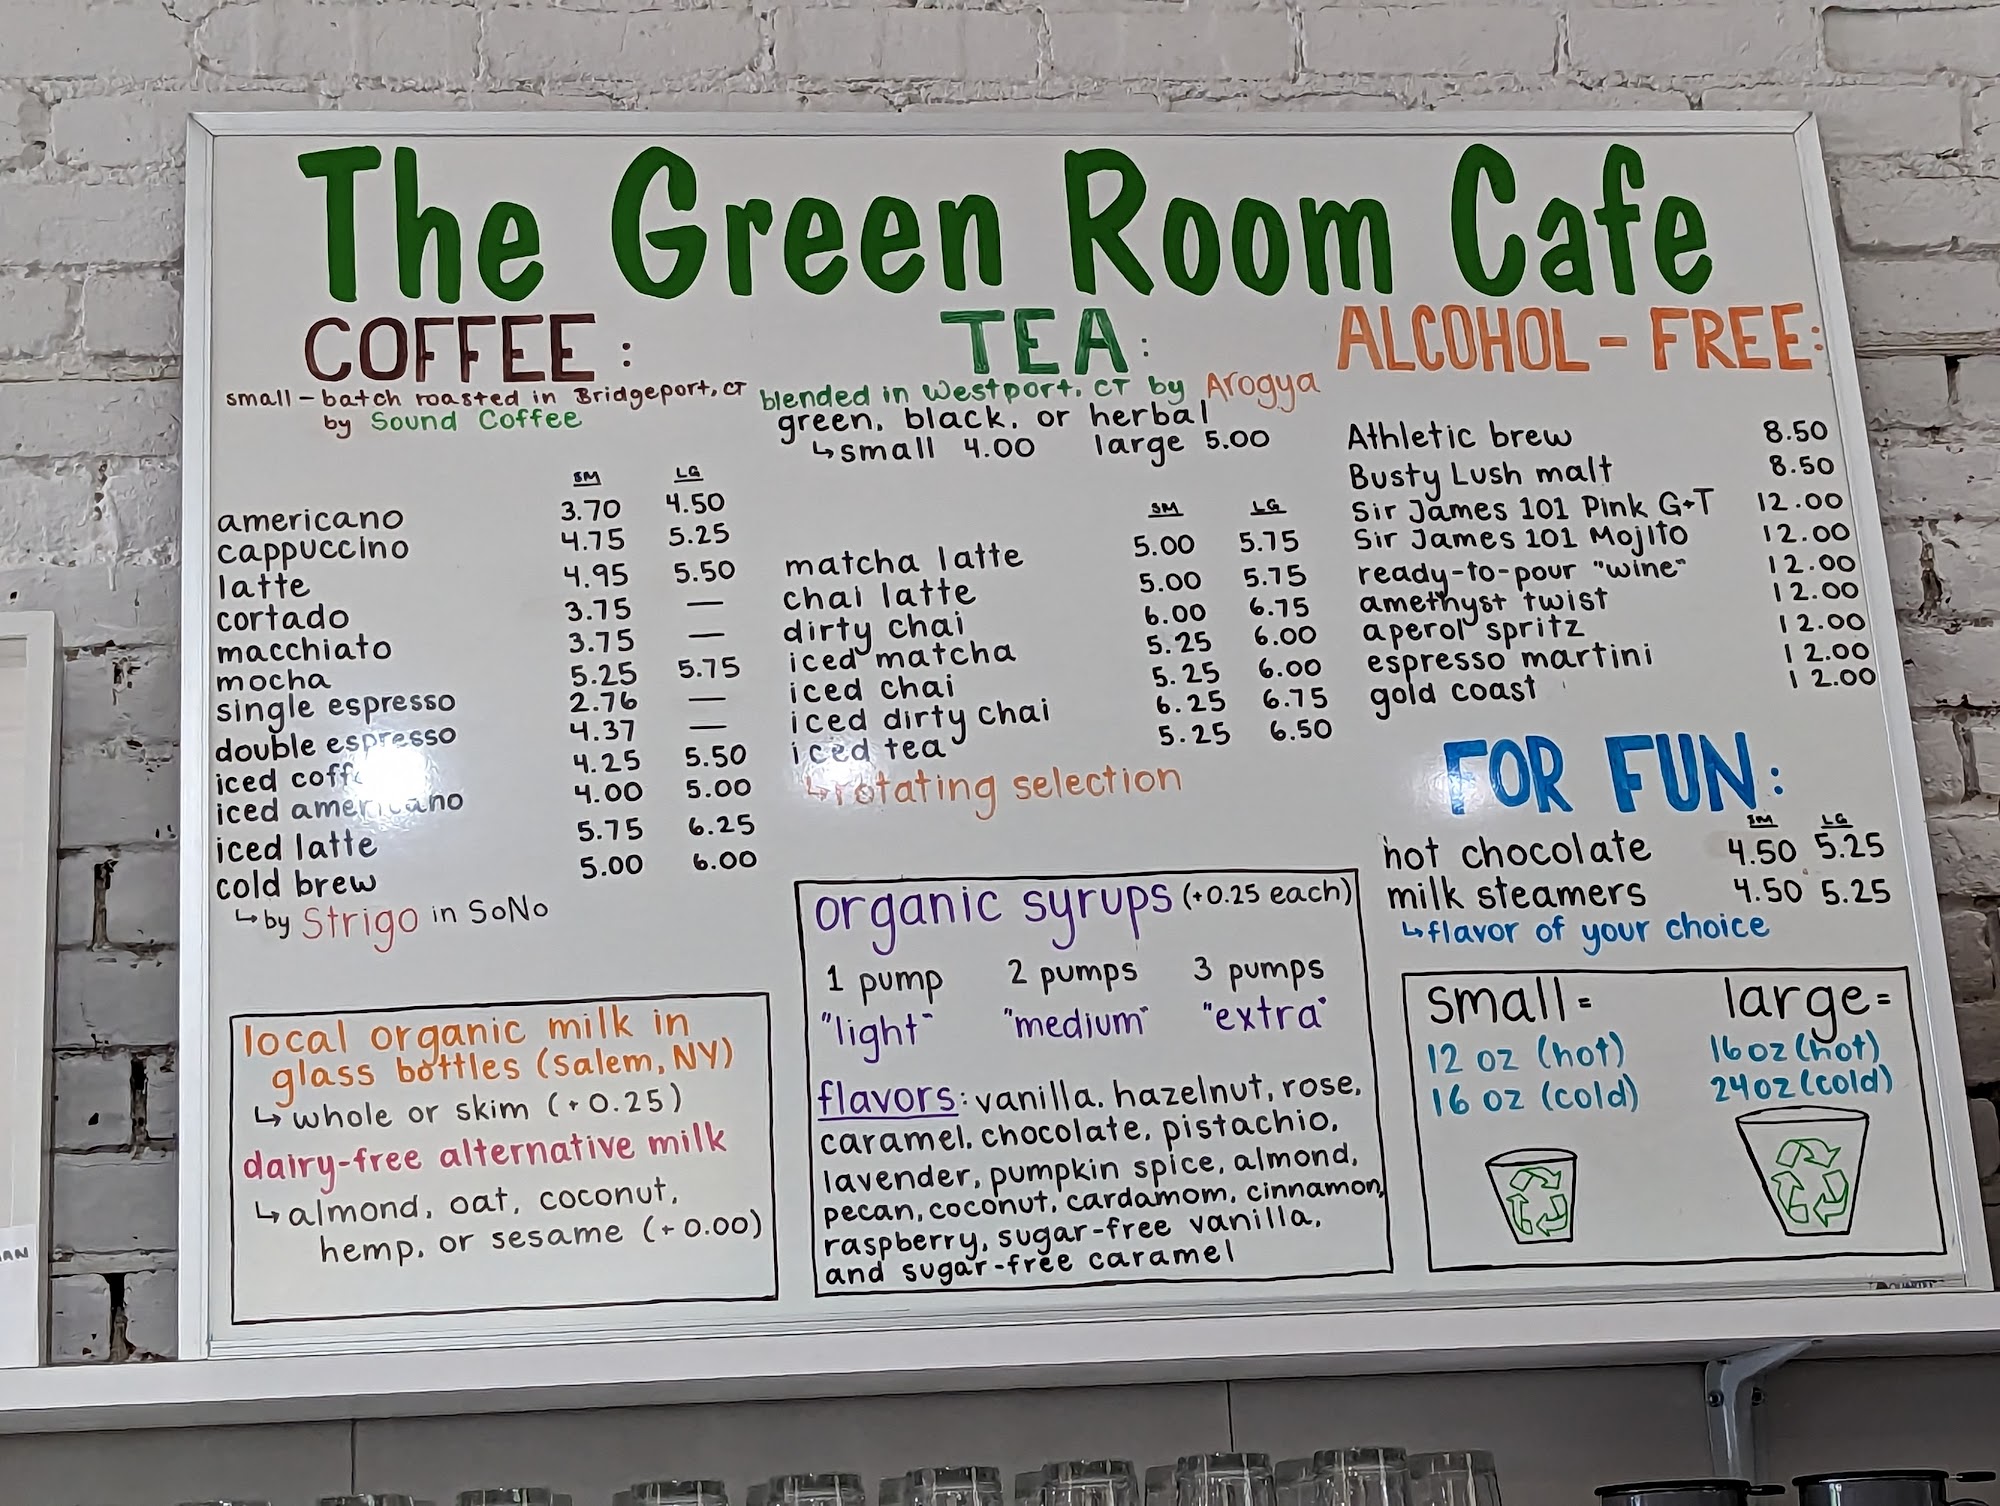 The Green Room Cafe
COFFEE:
small-batch roasted in Bridgeport, CT
by Sound Coffee
SM LG
americano 3.70 4.50
cappuccino 4.75 5.25
latte 4.95 5.50
cortado 3.75 —
macchiato 3.75 —
mocha 5.25 5.75
single espresso 2.76 —
double espresso 4.37 —
iced coff 4.25 5.50
iced americano 4.00 5.00
iced latte 5.75 6.25
cold brew 5.00 6.00
↳by Strigo in SoNo
local organic milk in
glass bottles (Salem, NY)
↳ whole or skim (+0.25)
dairy-free alternative milk
↳ almond, oat, coconut,
hemp, or sesame (+0.00)
TEA:
blended in Westport, CT by Arogya
green, black, or herbal
↳small 4.00 large 5.00
SM LG
matcha latte 5.00 5.75
chai latte 5.00 5.75
dirty chai 6.00 6.75
iced matcha 5.25 6.00
iced chai 5.25 6.00
iced dirty chai 6.25 6.75
iced tea 5.25 6.50
↳rotating selection
organic syrups (+0.25 each)
1 pump 2 pumps 3 pumps
"light" "medium" "extra"
flavors: vanilla, hazelnut, rose,
caramel, chocolate, pistachio,
lavender, pumpkin spice, almond,
pecan, coconut, cardamom, cinnamon,
raspberry, sugar-free vanilla,
and sugar-free caramel
ALCOHOL-FREE:
Athletic brew 8.50
Busty Lush malt 8.50
Sir James 101 Pink G+T 12.00
Sir James 101 Mojito 12.00
ready-to-pour "wine" 12.00
amethyst twist 12.00
aperol spritz 12.00
espresso martini 12.00
gold coast 12.00
FOR FUN:
SM LG
hot chocolate 4.50 5.25
milk steamers 4.50 5.25
↳flavor of your choice
small= large=
12 oz (hot) 16 oz (hot)
16 oz (cold) 24 oz (cold)